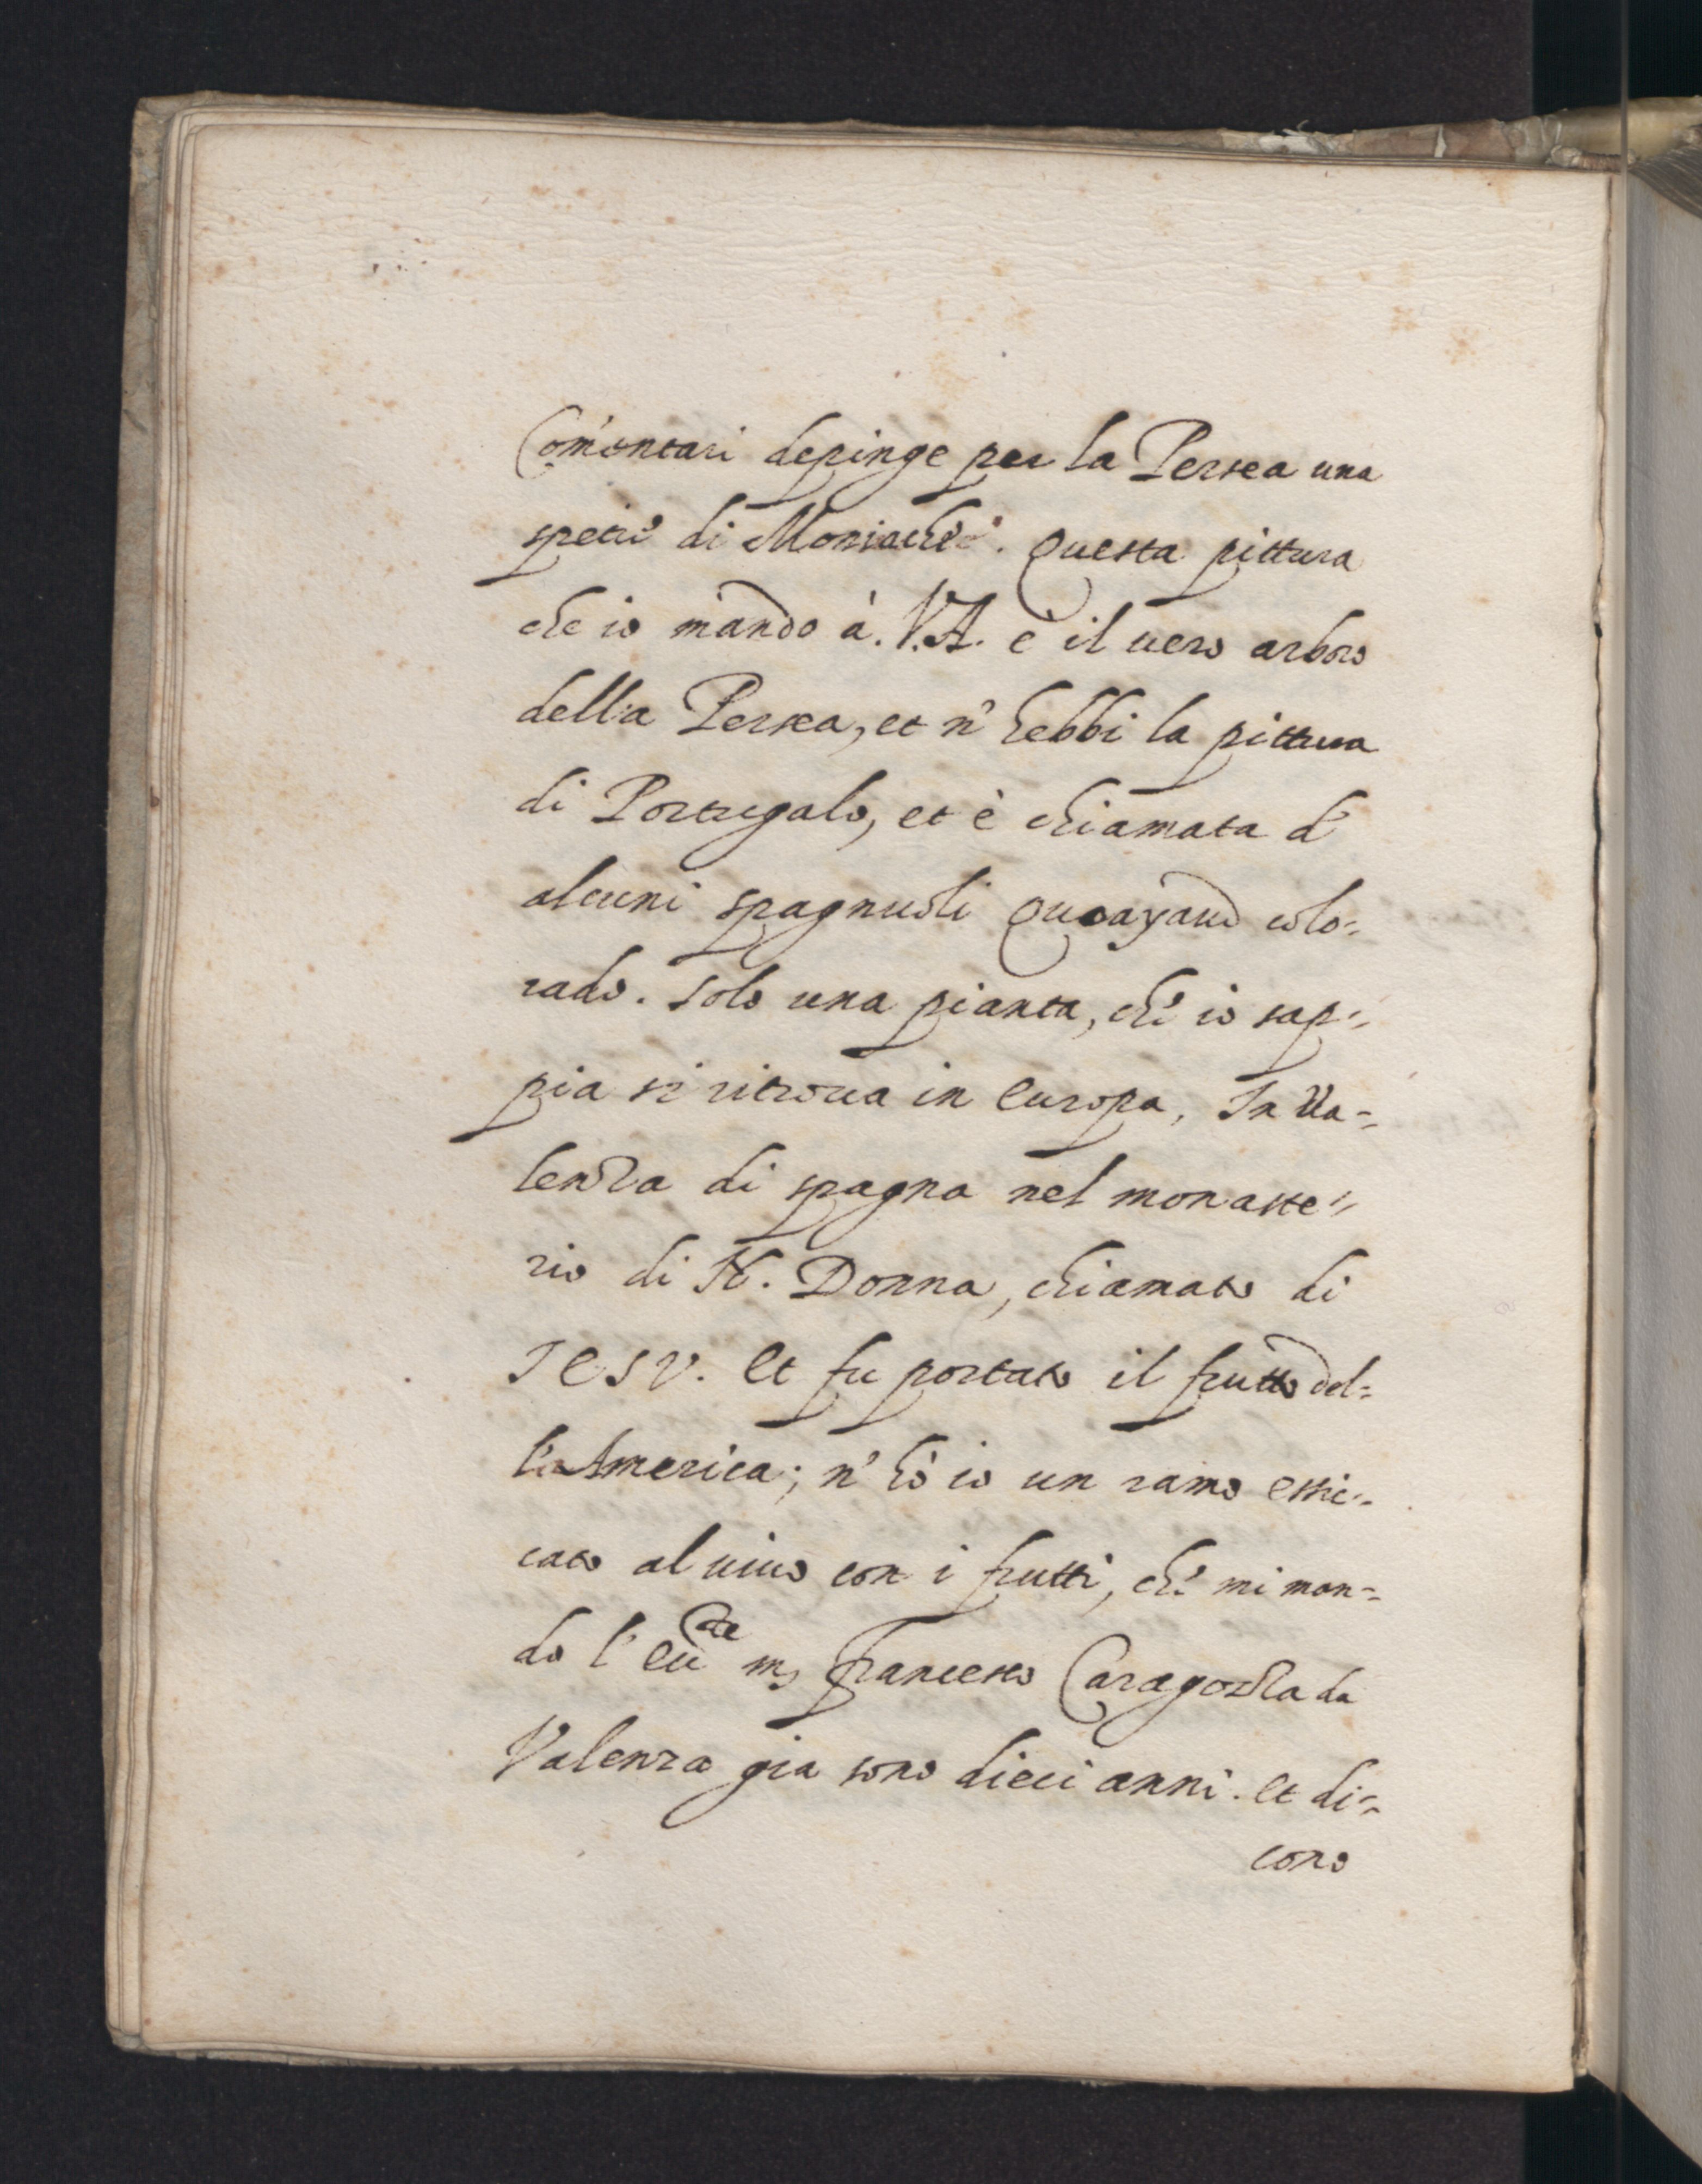 Com̃entari depinge per la Persea una
spetie di Moniache. Questa pittura
che io mando à. V.A. è il uero arboro
della Persea, et n' hebbi la pittura
di Portugalo, et è chiamata d'
alcuni spagnuoli colo-
rado. Solo una pianta, ch' io sap-
pia si ritroua in Europa, In Va-
lenza di spagna nel monaste-
rio di N. Donna, chiamato di
JESV. Et fu portato il frutto del-
l'America; n' hò io un ramo essic-
cato al uiuo con i frutti, ch' mi man-
do l' Francesco Caragozza da
Valenza gia sono dieci anni. Et di-
cono